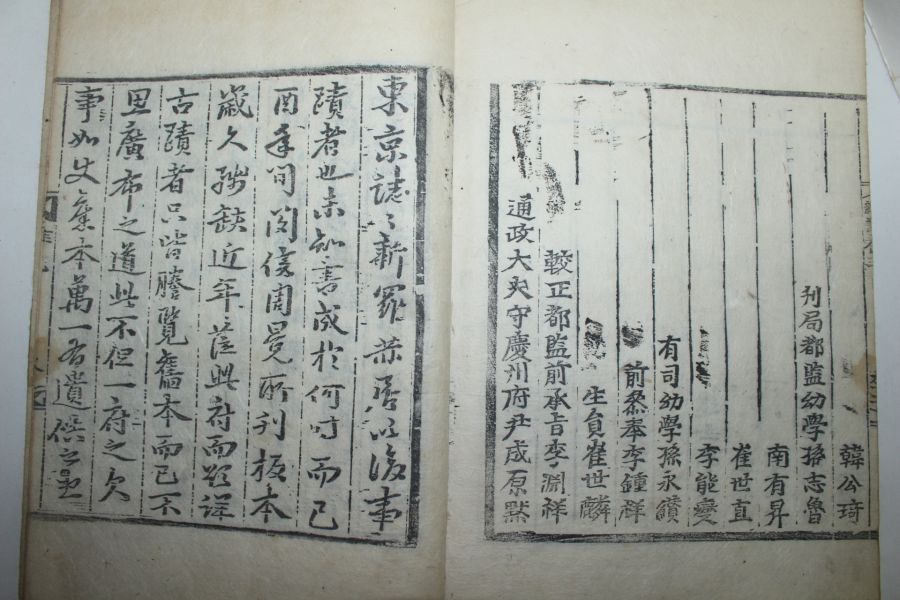 韓公琦
刋局都監幼學孫志魯
南有昇
崔世直
李能燮
有司幼學孫永鑽
前叅奉李鍾祥
生員崔世麟
較正都監前承旨李淵祥
通政大夫守慶州府尹成原默
東京誌〻新羅以後事
蹟者也未知書成於何时而己
酉年間閔侯周冕所刊板本
歲久殘缺近年莅此府而欲詳
古蹟者只皆謄覽舊本而已不
思廣布之道此不但一府之欠
事如使舊本萬一有遺佚之患